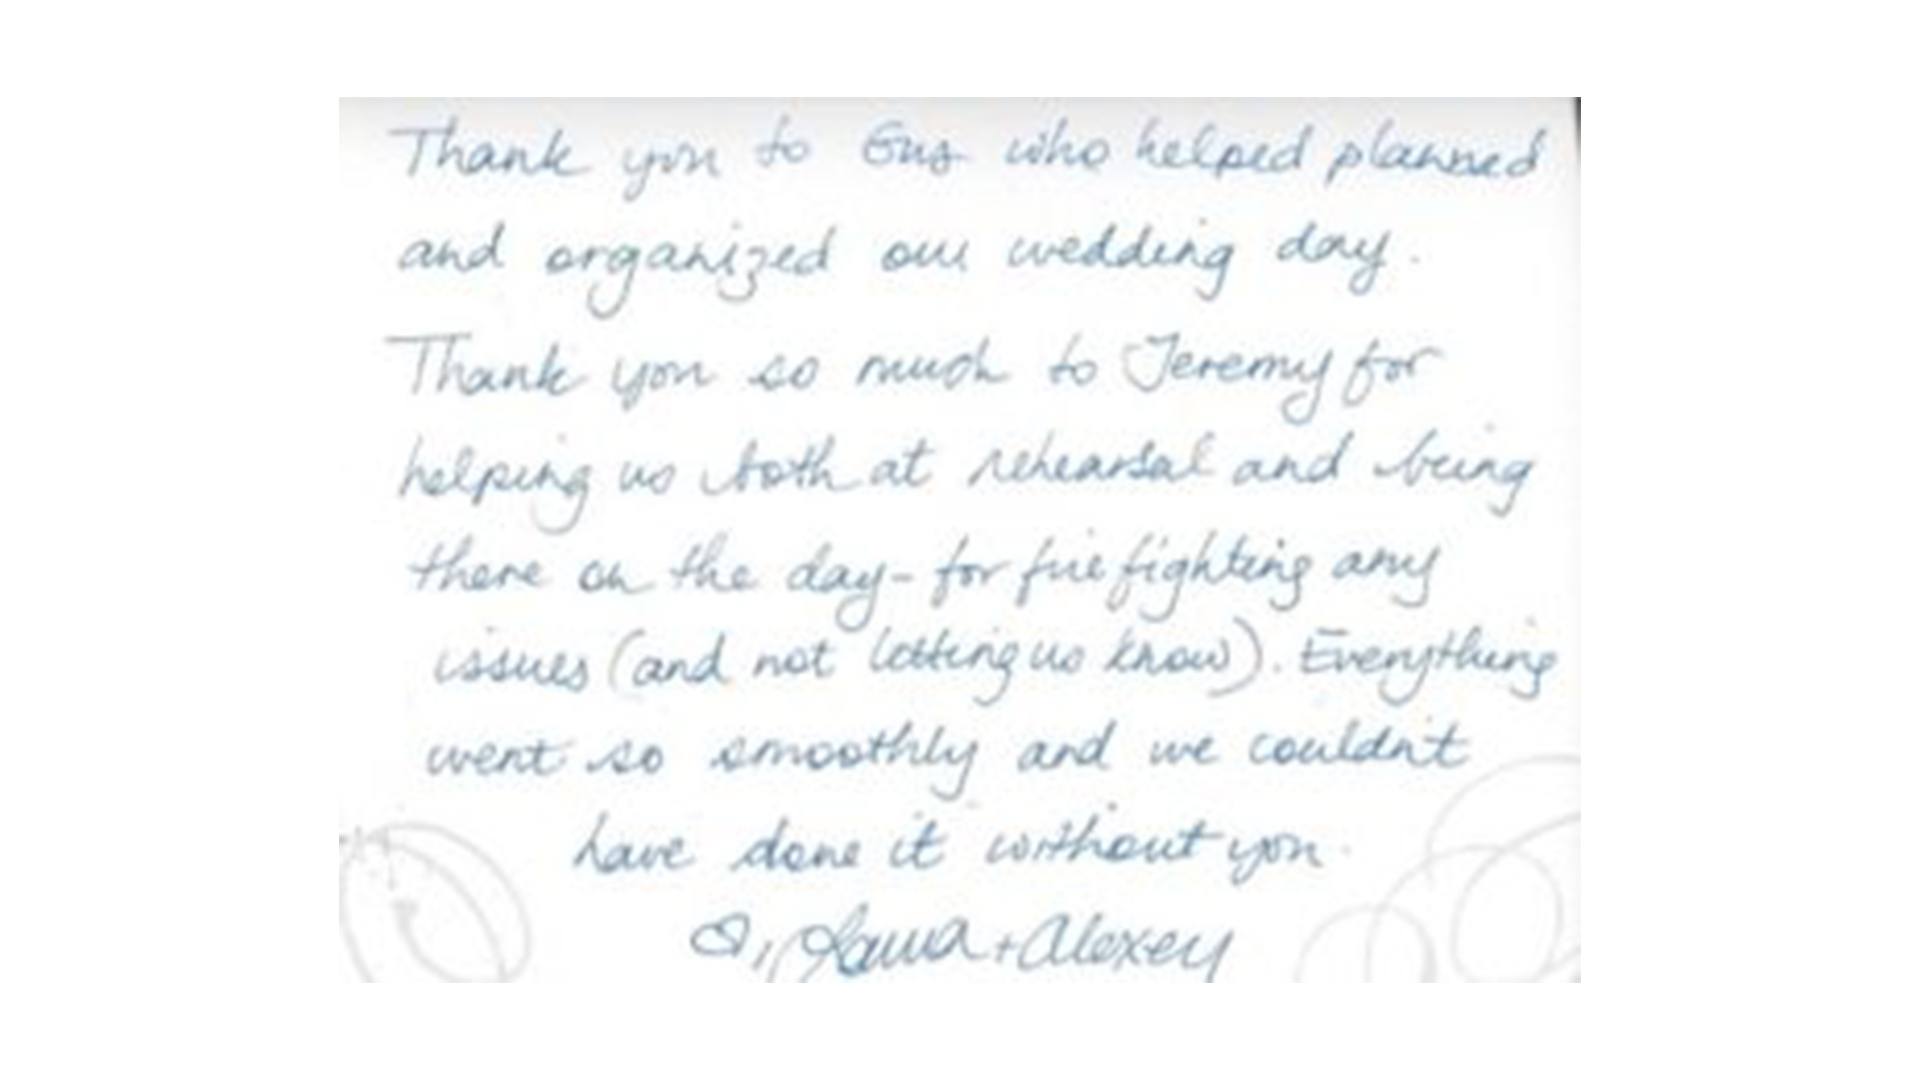 Thank you to Gus who helped planned
and organized our wedding day.
Thank you so much to Jeremy for
helping us both at rehearsal and being
there on the day - for firefighting any
issues (and not letting us know). Everything
went so smoothly and we couldn't
have done it without you.
♡, Laura + Alexey